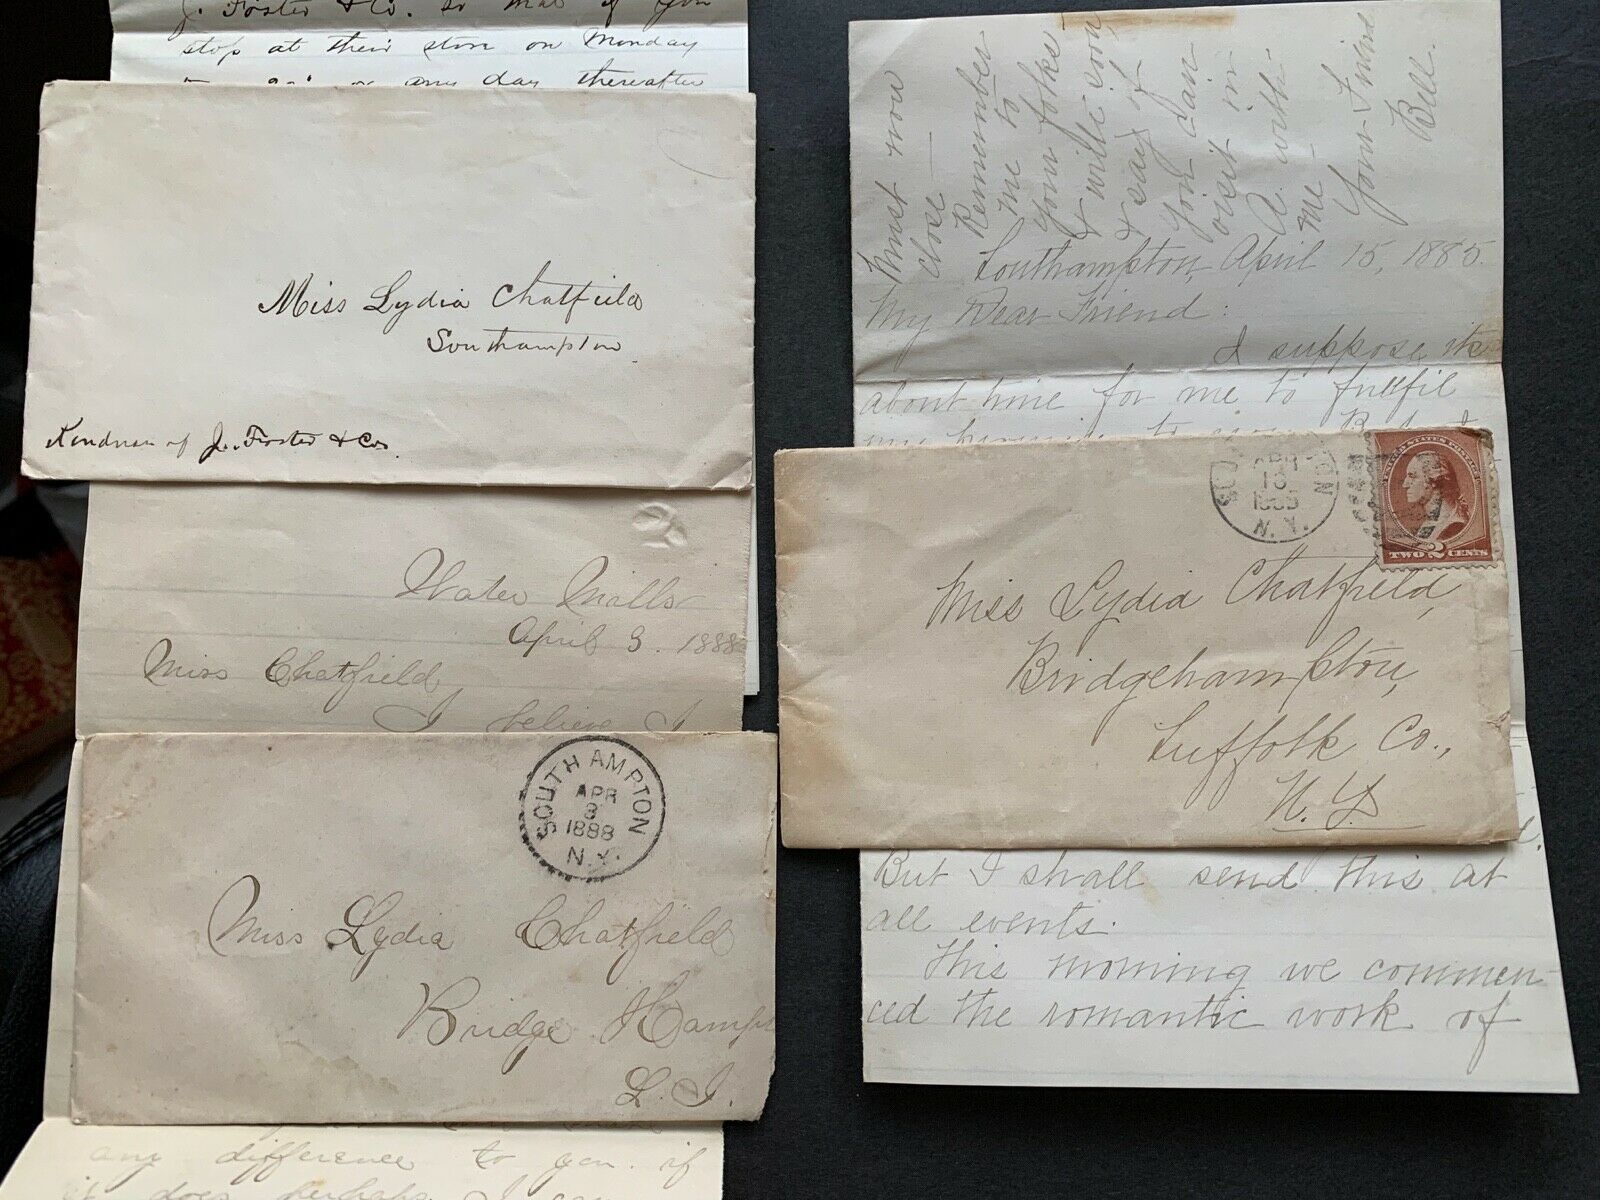 J. Foster & Co. so that if you
stop at their store on Monday
or any day thereafter
Miss Lydia Chatfield
Southampton
Kindness of J. Foster & Co.
Water Mills
April 3. 1888
Miss Chatfield
I believe I
SOUTHAMPTON
APR
3
1888
N.Y.
Miss Lydia Chatfield
Bridge Hampt
L. I.
any difference to you. if
it does perhaps I can
Must now
close —
Remember
me to
your folks
& write soon
& say if
you can
visit in
A. with
me —
Your Friend
Bell.
Southampton, April 15, 1885.
My Dear Friend:
I suppose its
about time for me to fullfil
my promise to
APR
N.Y.
UNITED STATES POSTAGE
TWO 2 CENTS
Miss Lydia Chatfield,
Bridgehampton,
Suffolk Co.,
N.Y.
But I shall send this at
all events.
This morning we commen-
ced the romantic work of